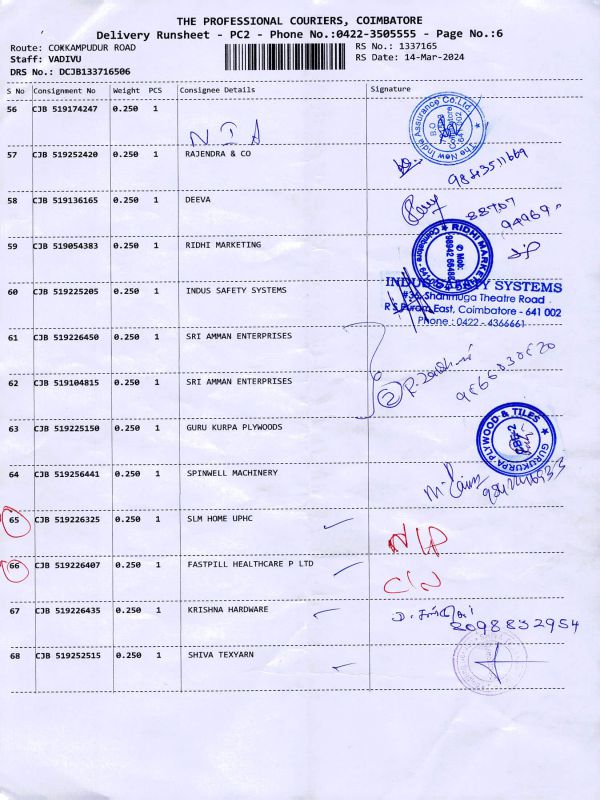 THE PROFESSIONAL COURIERS, COIMBATORE
Delivery Runsheet - PC2 - Phone No.:0422-3505555 - Page No.:6
Route: COKKAMPUDUR ROAD RS No.: 1337165
Staff: VADIVU RS Date: 14-Mar-2024
DRS No.: DCJB133716506
S No Consignment No Weight PCS Consignee Details Signature
56 CJB 519174247 0.250 1
The New India Assurance Co.Ltd.
NIA
57 CJB 519252420 0.250 1 RAJENDRA & CO
9843511669
58 CJB 519136165 0.250 1 DEEVA
88707
94969
59 CJB 519054383 0.250 1 RIDHI MARKETING
RIDHI MARKETING
60 CJB 519225205 0.250 1 INDUS SAFETY SYSTEMS
INDUS SAFETY SYSTEMS
#36, Shanmuga Theatre Road
R S Puram East, Coimbatore - 641 002
Phone : 0422 - 4366661
61 CJB 519226450 0.250 1 SRI AMMAN ENTERPRISES
62 CJB 519104815 0.250 1 SRI AMMAN ENTERPRISES
2
63 CJB 519225150 0.250 1 GURU KURPA PLYWOODS
GURUKURPA PLYWOOD & TILES
64 CJB 519256441 0.250 1 SPINWELL MACHINERY
65 CJB 519226325 0.250 1 SLM HOME UPHC
N/P
66 CJB 519226407 0.250 1 FASTPILL HEALTHCARE P LTD
C/N
67 CJB 519226435 0.250 1 KRISHNA HARDWARE
8098832954
68 CJB 519252515 0.250 1 SHIVA TEXYARN